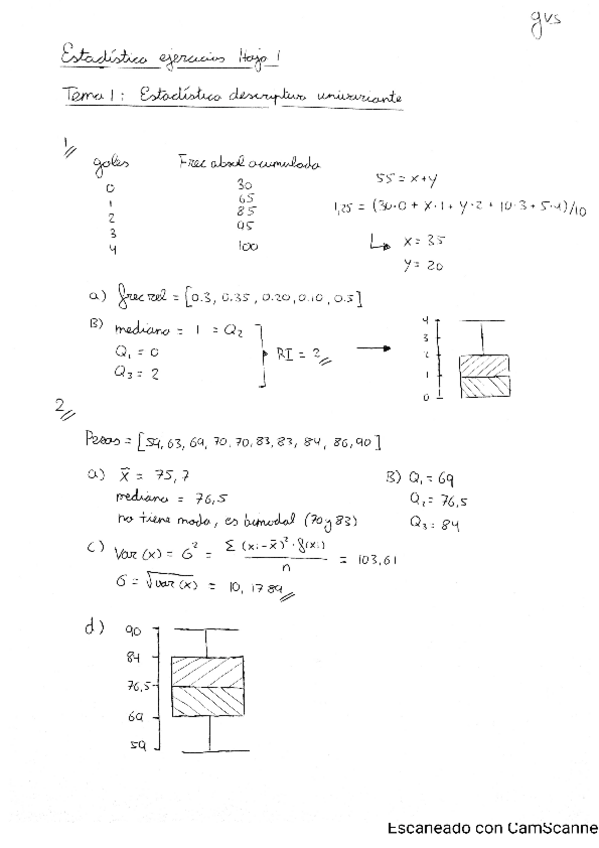 gvs
Estadística ejercicios Hoja 1
Tema 1: Estadística descriptiva univariante
1//
goles Frec absol acumulada
0 30
1 65
2 85
3 95
4 100
55 = x+y
1,25 = (30·0 + x·1 + y·2 + 10·3 + 5·4)/10
↳ x = 35
y = 20
a) frec rel = [0.3, 0.35, 0.20, 0.10, 0.5]
B) mediana = 1 = Q₂
Q₁ = 0
Q₃ = 2
RI = 2 //
4
3
2
1
0
2//
Pesos = [59, 63, 69, 70, 70, 83, 83, 84, 86, 90]
a) x̄ = 75,7
mediana = 76,5
no tiene moda, es bimodal (70 y 83)
B) Q₁ = 69
Q₂ = 76,5
Q₃ = 84
c) Var(x) = σ² = Σ (xᵢ - x̄)² · f(xᵢ) / n = 103,61
σ = √var(x) = 10,1789 //
d) 90
84
76,5
69
59
Escaneado con CamScanne